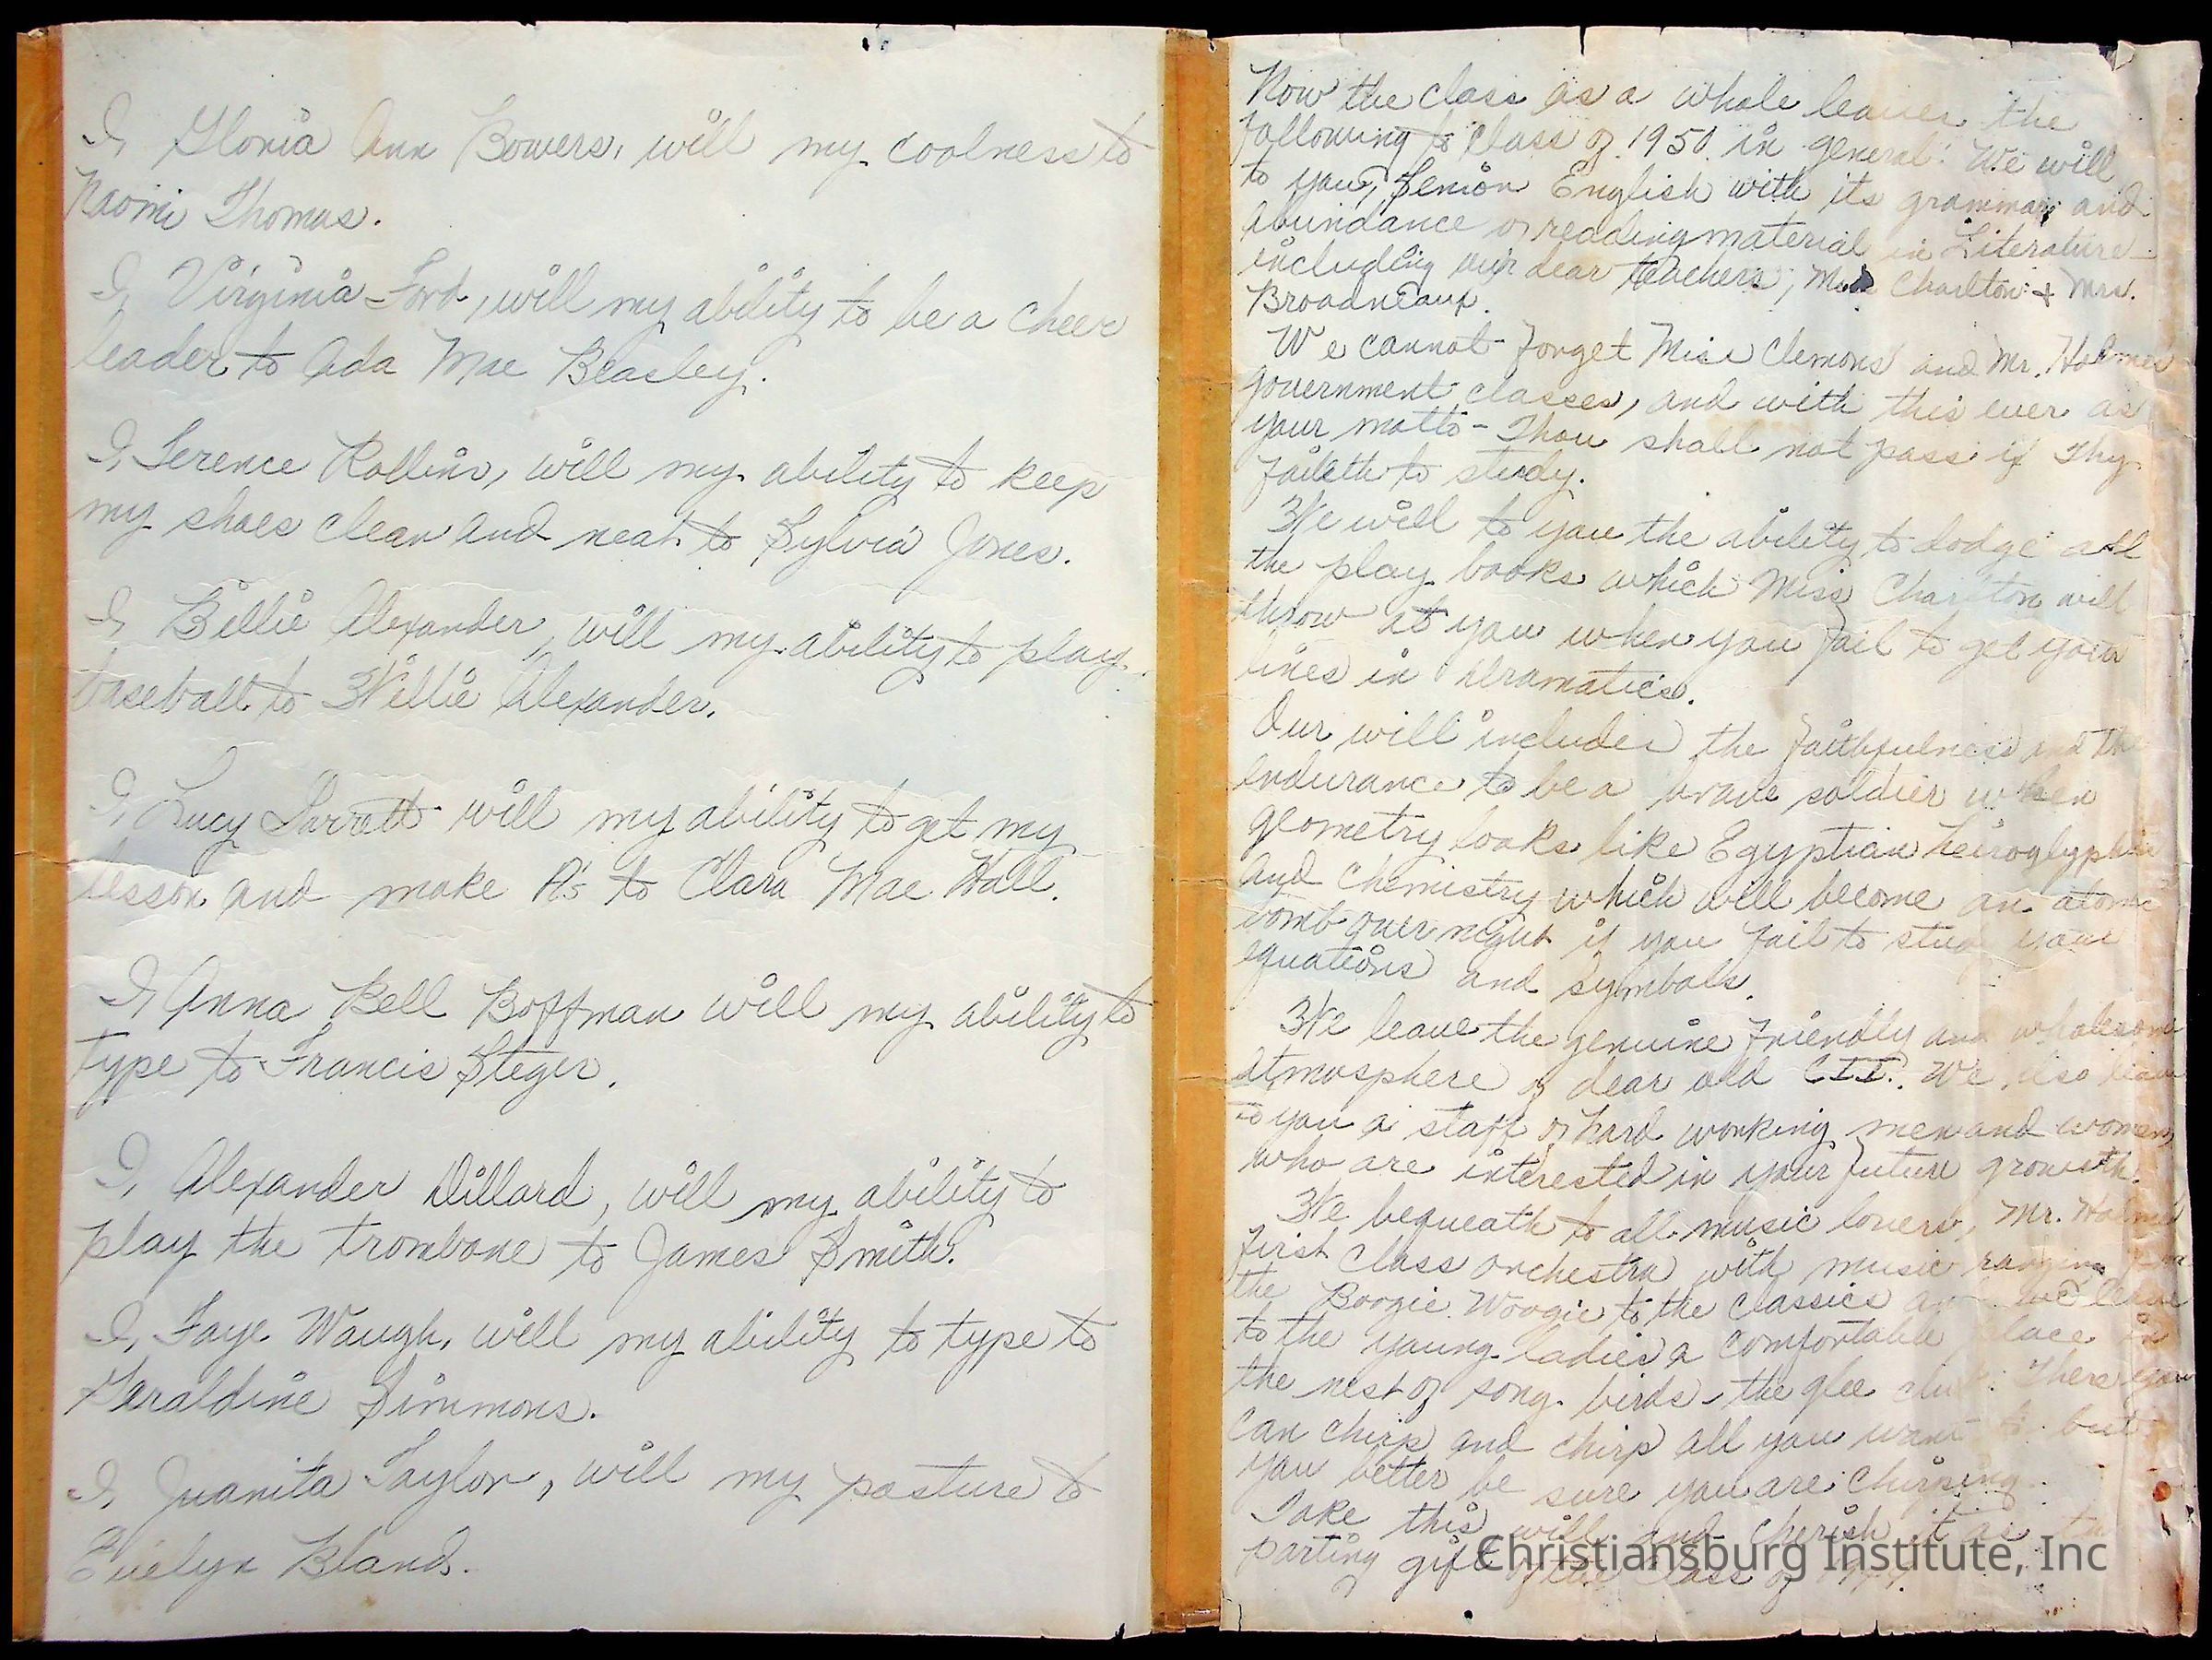 I, Gloria Ann Bowers, will my coolness to
Naomi Thomas.
I, Virginia Ford, will my ability to be a cheer
leader to Ada Mae Beasley.
I, Terence Rollins, will my ability to keep
my shoes clean and neat to Sylvia Jones.
I, Billie Alexander, will my ability to play
baseball to Willie Alexander.
I, Lucy will my ability to get my
lesson and make A's to Clara Mae Hall.
I, Anna Bell Boffman will my ability to
type to Francis Steger.
I, Alexander Dillard, will my ability to
play the trombone to James Smith.
I, Faye Waugh, will my ability to type to
Garaldine Simmons.
I, Juanita Taylor, will my posture to
Evelyn Bland.
Now the class as a whole leaves the
following to class of 1950 in general: We will
to you, Senior English with its grammar and
abundance of reading material in Literature
including our dear teachers, Miss Charlton + Mrs.
Broadneaux.
We cannot forget Miss Clemons and Mr. Holmes
government classes, and with this ever as
your motto - Thou shall not pass if Thy
faileth to study.
We will to you the ability to dodge all
the play books which Miss Charlton will
throw at you when you fail to get your
lines in dramatics.
Our will includes the faithfulness and the
endurance to be a brave soldier when
geometry looks like Egyptian heiroglyphics
and chemistry which will become an atomic
bomb over night if you fail to study your
equations and symbols.
We leave the genuine friendly and wholesome
atmosphere of dear old C.I.I. We also leave
to you a staff of hard working men and women,
who are interested in your future growth.
We bequeath to all music lovers, Mr. Holmes
first class orchestra with music ranging from
the Boogie Woogie to the classics and we leave
to the young ladies a comfortable place in
the nest of song birds - the glee club. There you
can chirp and chirp all you want to but
you better be sure you are chirping.
Take this will and cherish it as the
parting gift of the class of 1949.
Christiansburg Institute, Inc